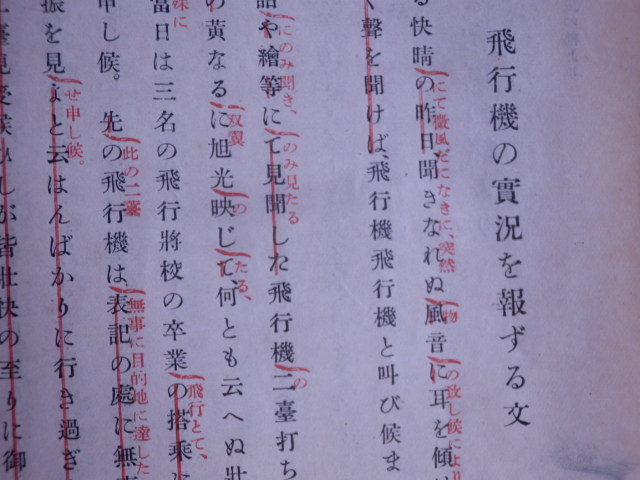 飛行機の實況を報ずる文
る快晴の昨日、聞きなれぬ風音に耳を傾け
にて微風だになきに、突然
物
の致し候により
聲を聞けば、飛行機飛行機と叫び候ま
話や繪等にて見聞した飛行機二臺打ち
にのみ聞き、
のみ見たる
の
の黄なるに旭光映じて、何とも云へぬ壯
双翼
の
たる、
當日は三名の飛行將校の卒業の搭乘に
殊に
飛行とて、
申し候。先の飛行機は、表記の處に無事
此の二臺
無事に目的地に達した
振を見よと云はんばかりに行き過ぎ
せ申し候。
見受候ひしが皆壯快の至りに御